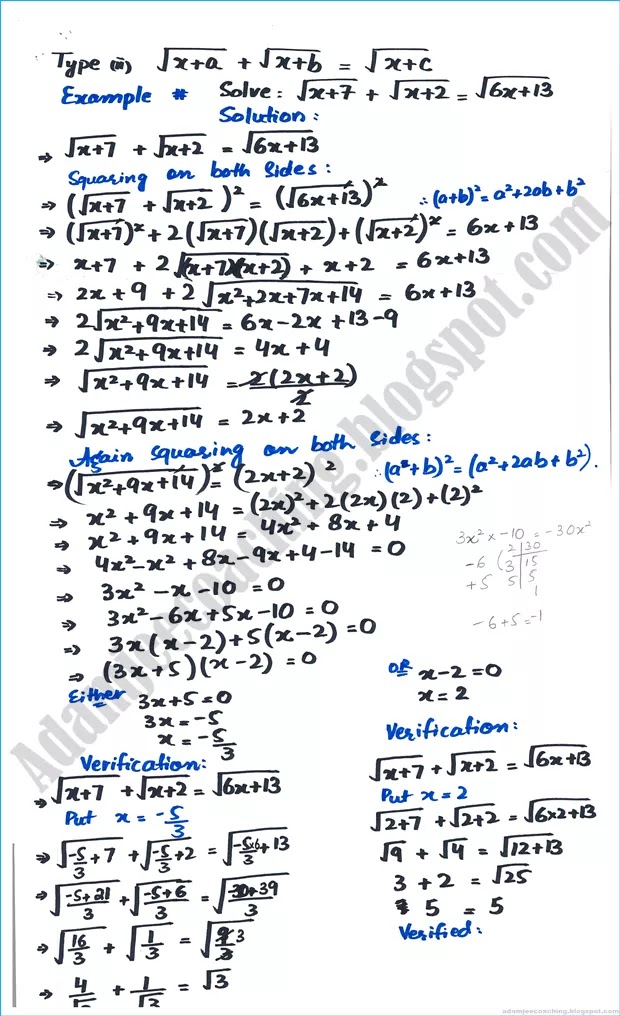 Type (iii) √x+a + √x+b = √x+c
Example # Solve: √x+7 + √x+2 = √6x+13
Solution:
⇒ √x+7 + √x+2 = √6x+13
Squaring on both Sides:
⇒ (√x+7 + √x+2)² = (√6x+13)² ∴ (a+b)² = a²+2ab+b²
⇒ (√x+7)² + 2(√x+7)(√x+2) + (√x+2)² = 6x+13
⇒ x+7 + 2√(x+7)(x+2) + x+2 = 6x+13
⇒ 2x+9 + 2√x²+2x+7x+14 = 6x+13
⇒ 2√x²+9x+14 = 6x-2x+13-9
⇒ 2√x²+9x+14 = 4x+4
⇒ √x²+9x+14 = 2(2x+2)/2
⇒ √x²+9x+14 = 2x+2
Again squaring on both sides:
⇒ (√x²+9x+14)² = (2x+2)² ∴ (a²+b)² = (a²+2ab+b²).
⇒ x²+9x+14 = (2x)²+2(2x)(2)+(2)²
⇒ x²+9x+14 = 4x²+8x+4
⇒ 4x²-x²+8x-9x+4-14 = 0
⇒ 3x²-x-10 = 0
⇒ 3x²-6x+5x-10 = 0
⇒ 3x(x-2)+5(x-2) = 0
⇒ (3x+5)(x-2) = 0
3x² x -10 = -30x²
2 | 30
-6 ( 3 | 15
+5 5 | 5
1
-6+5 = -1
Either 3x+5=0
3x = -5
x = -5/3
Verification:
⇒ √x+7 + √x+2 = √6x+13
Put x = -5/3
⇒ √-5/3+7 + √-5/3+2 = √-5x6/3+13
⇒ √-5+21/3 + √-5+6/3 = √-30+39/3
⇒ √16/3 + √1/3 = √9/3 3
⇒ 4/√ + 1/√3 = √3
OR x-2=0
x = 2
Verification:
√x+7 + √x+2 = √6x+13
Put x = 2
√2+7 + √2+2 = √6x2+13
√9 + √4 = √12+13
3 + 2 = √25
5 = 5
Verified:
Adamjeecoaching.blogspot.com
adamjeecoaching.blogspot.com